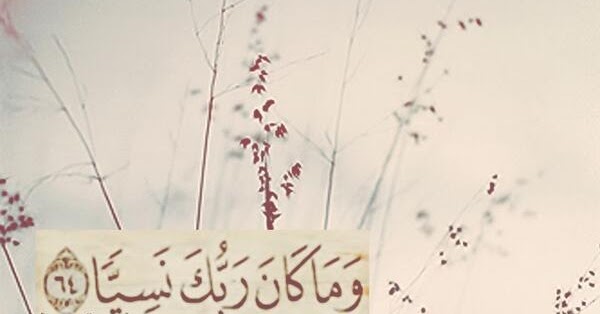 وَمَا كَانَ رَبُّكَ نَسِيًّا ٦٤